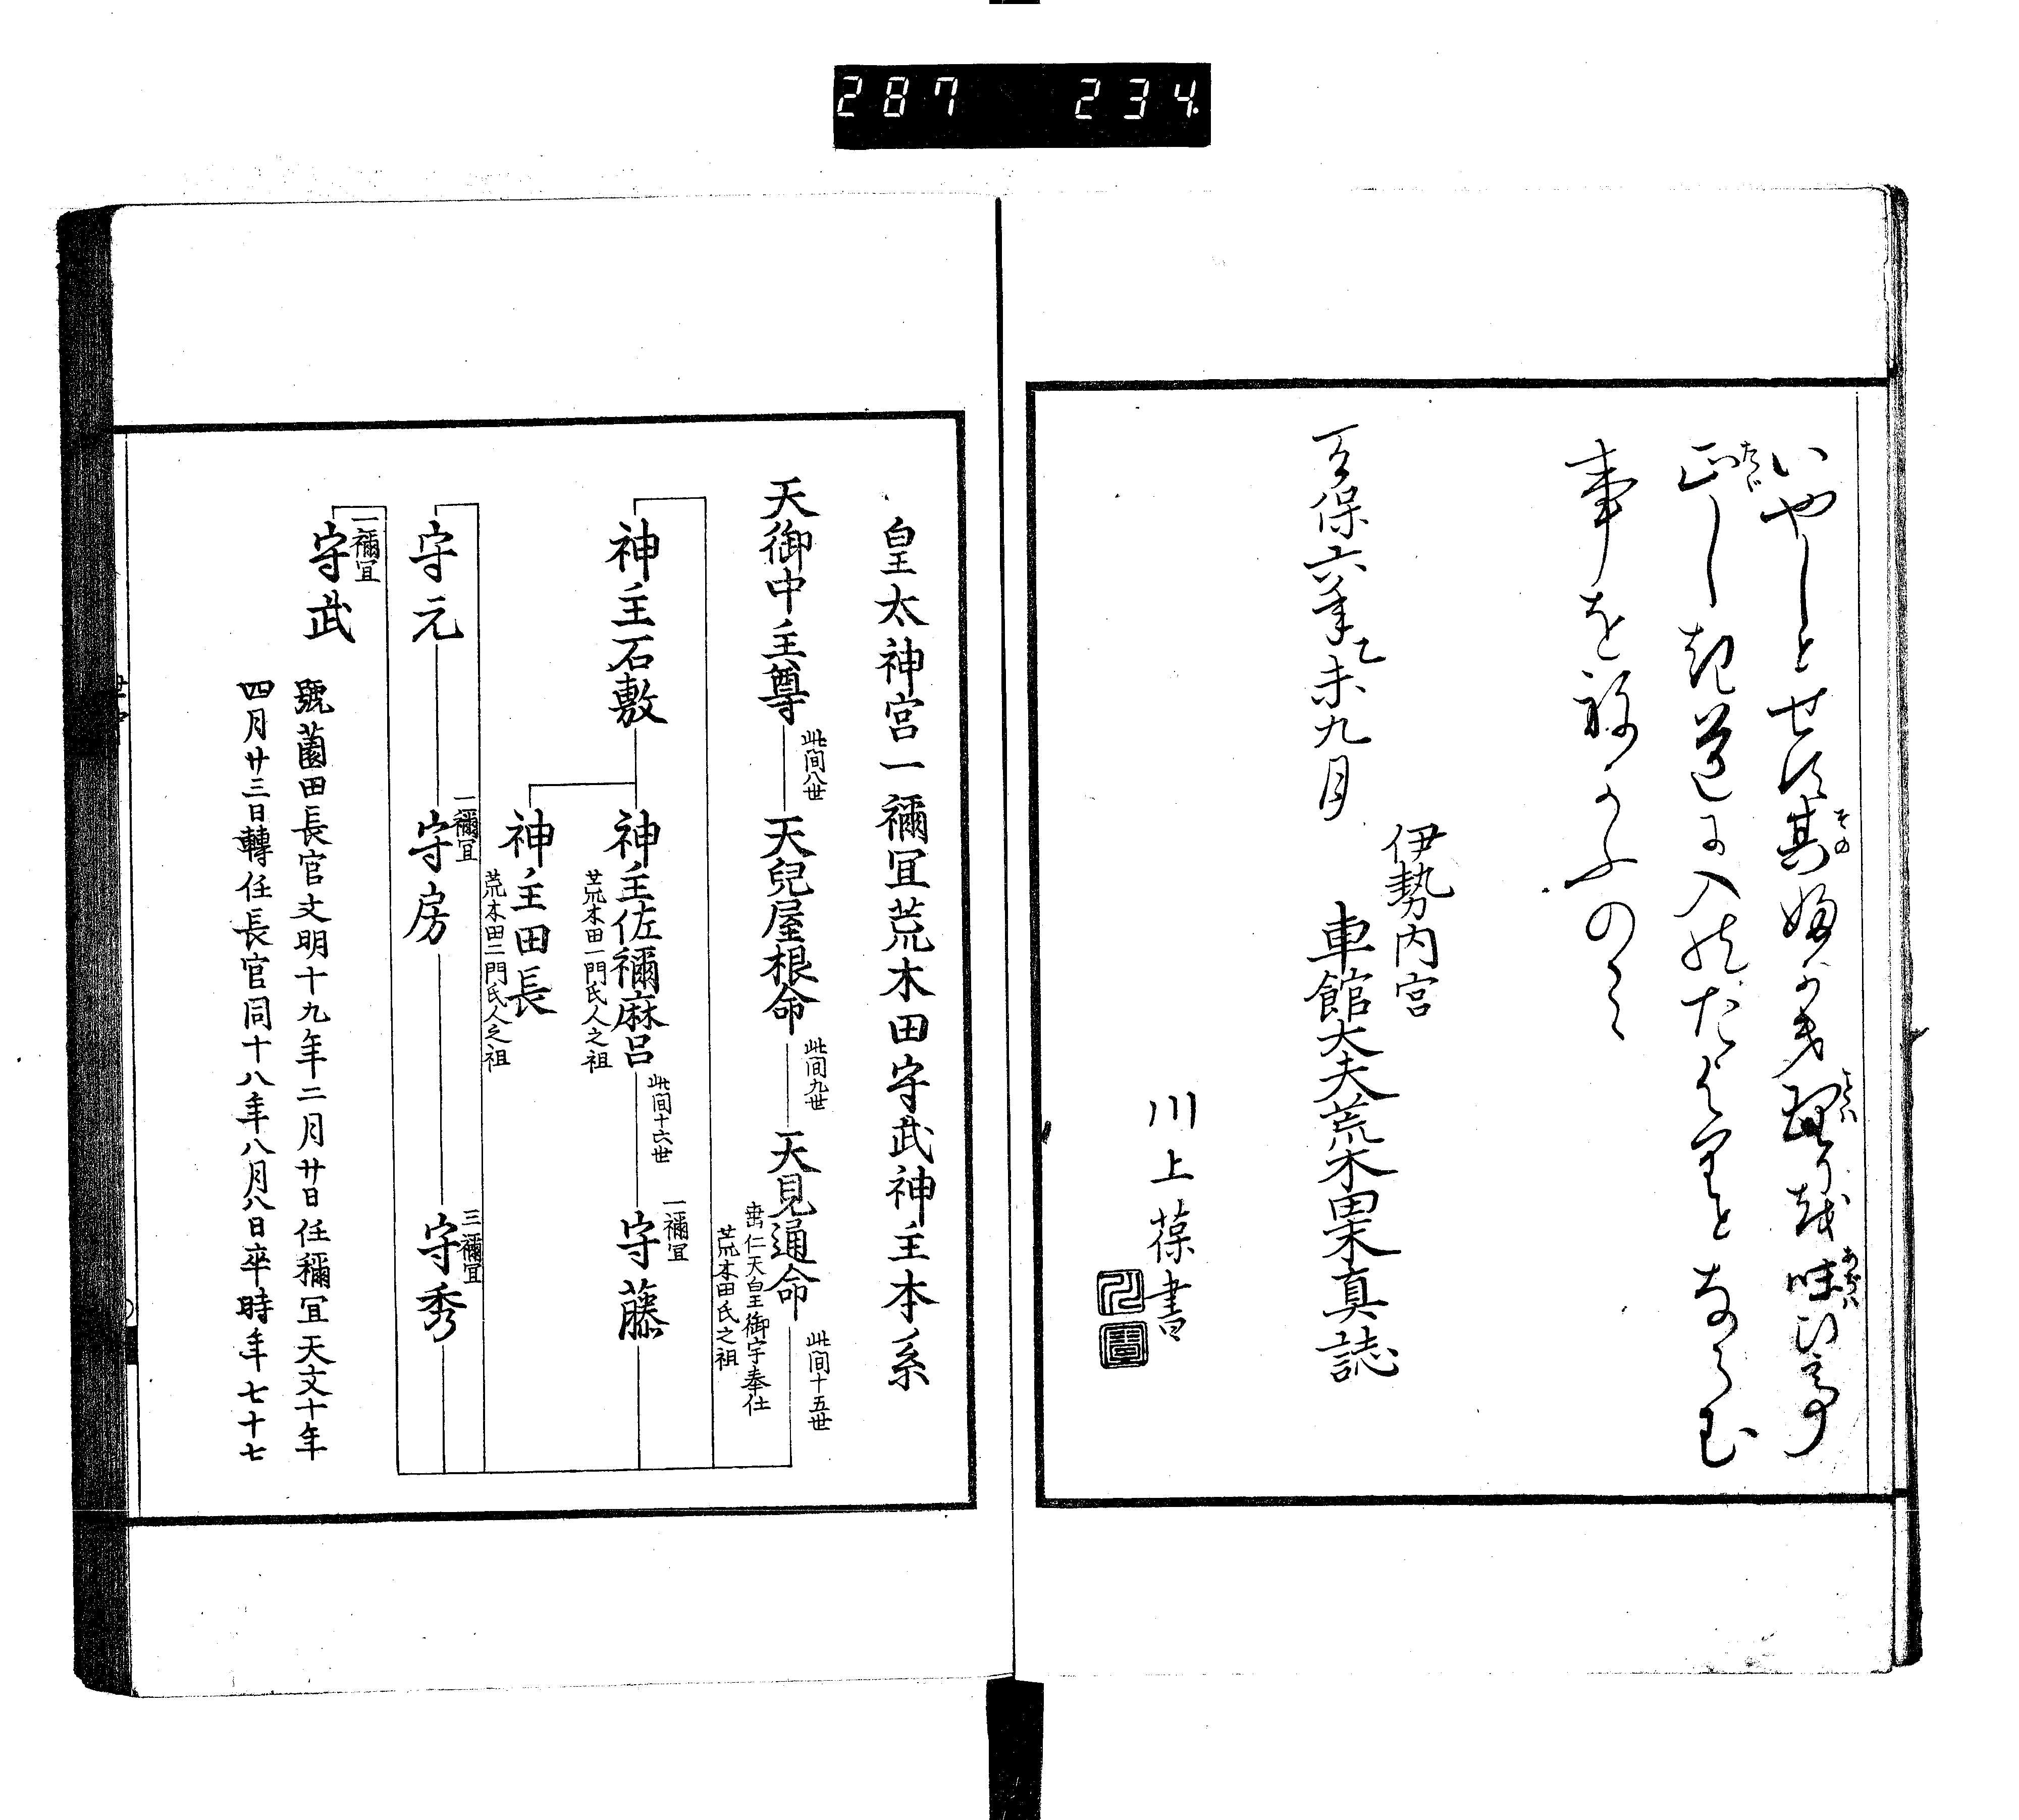 287 234
いやしとせす其婦かき理を味ひ亭
正しき道に入れたよりとあらむ
事を祢かふのミ
天保六年乙未九月
伊勢内宮
車館大夫荒木田末真誌
川上葆書
皇太神宮一禰冝荒木田守武神主本系
天御中主尊
此間八世
天兒屋根命
此間九世
天見通命
垂仁天皇御宇奉仕
荒木田氏之祖
此間十五世
神主石敷
神主佐禰麻呂
荒木田一門氏人之祖
此間十六世
一禰冝
守藤
神主田長
荒木田二門氏人之祖
守元
一禰冝
守房
三禰冝
守秀
一禰冝
守武
號薗田長官文明十九年二月廿日任禰冝天文十年
四月廿三日轉任長官同十八年八月八日卒時年七十七